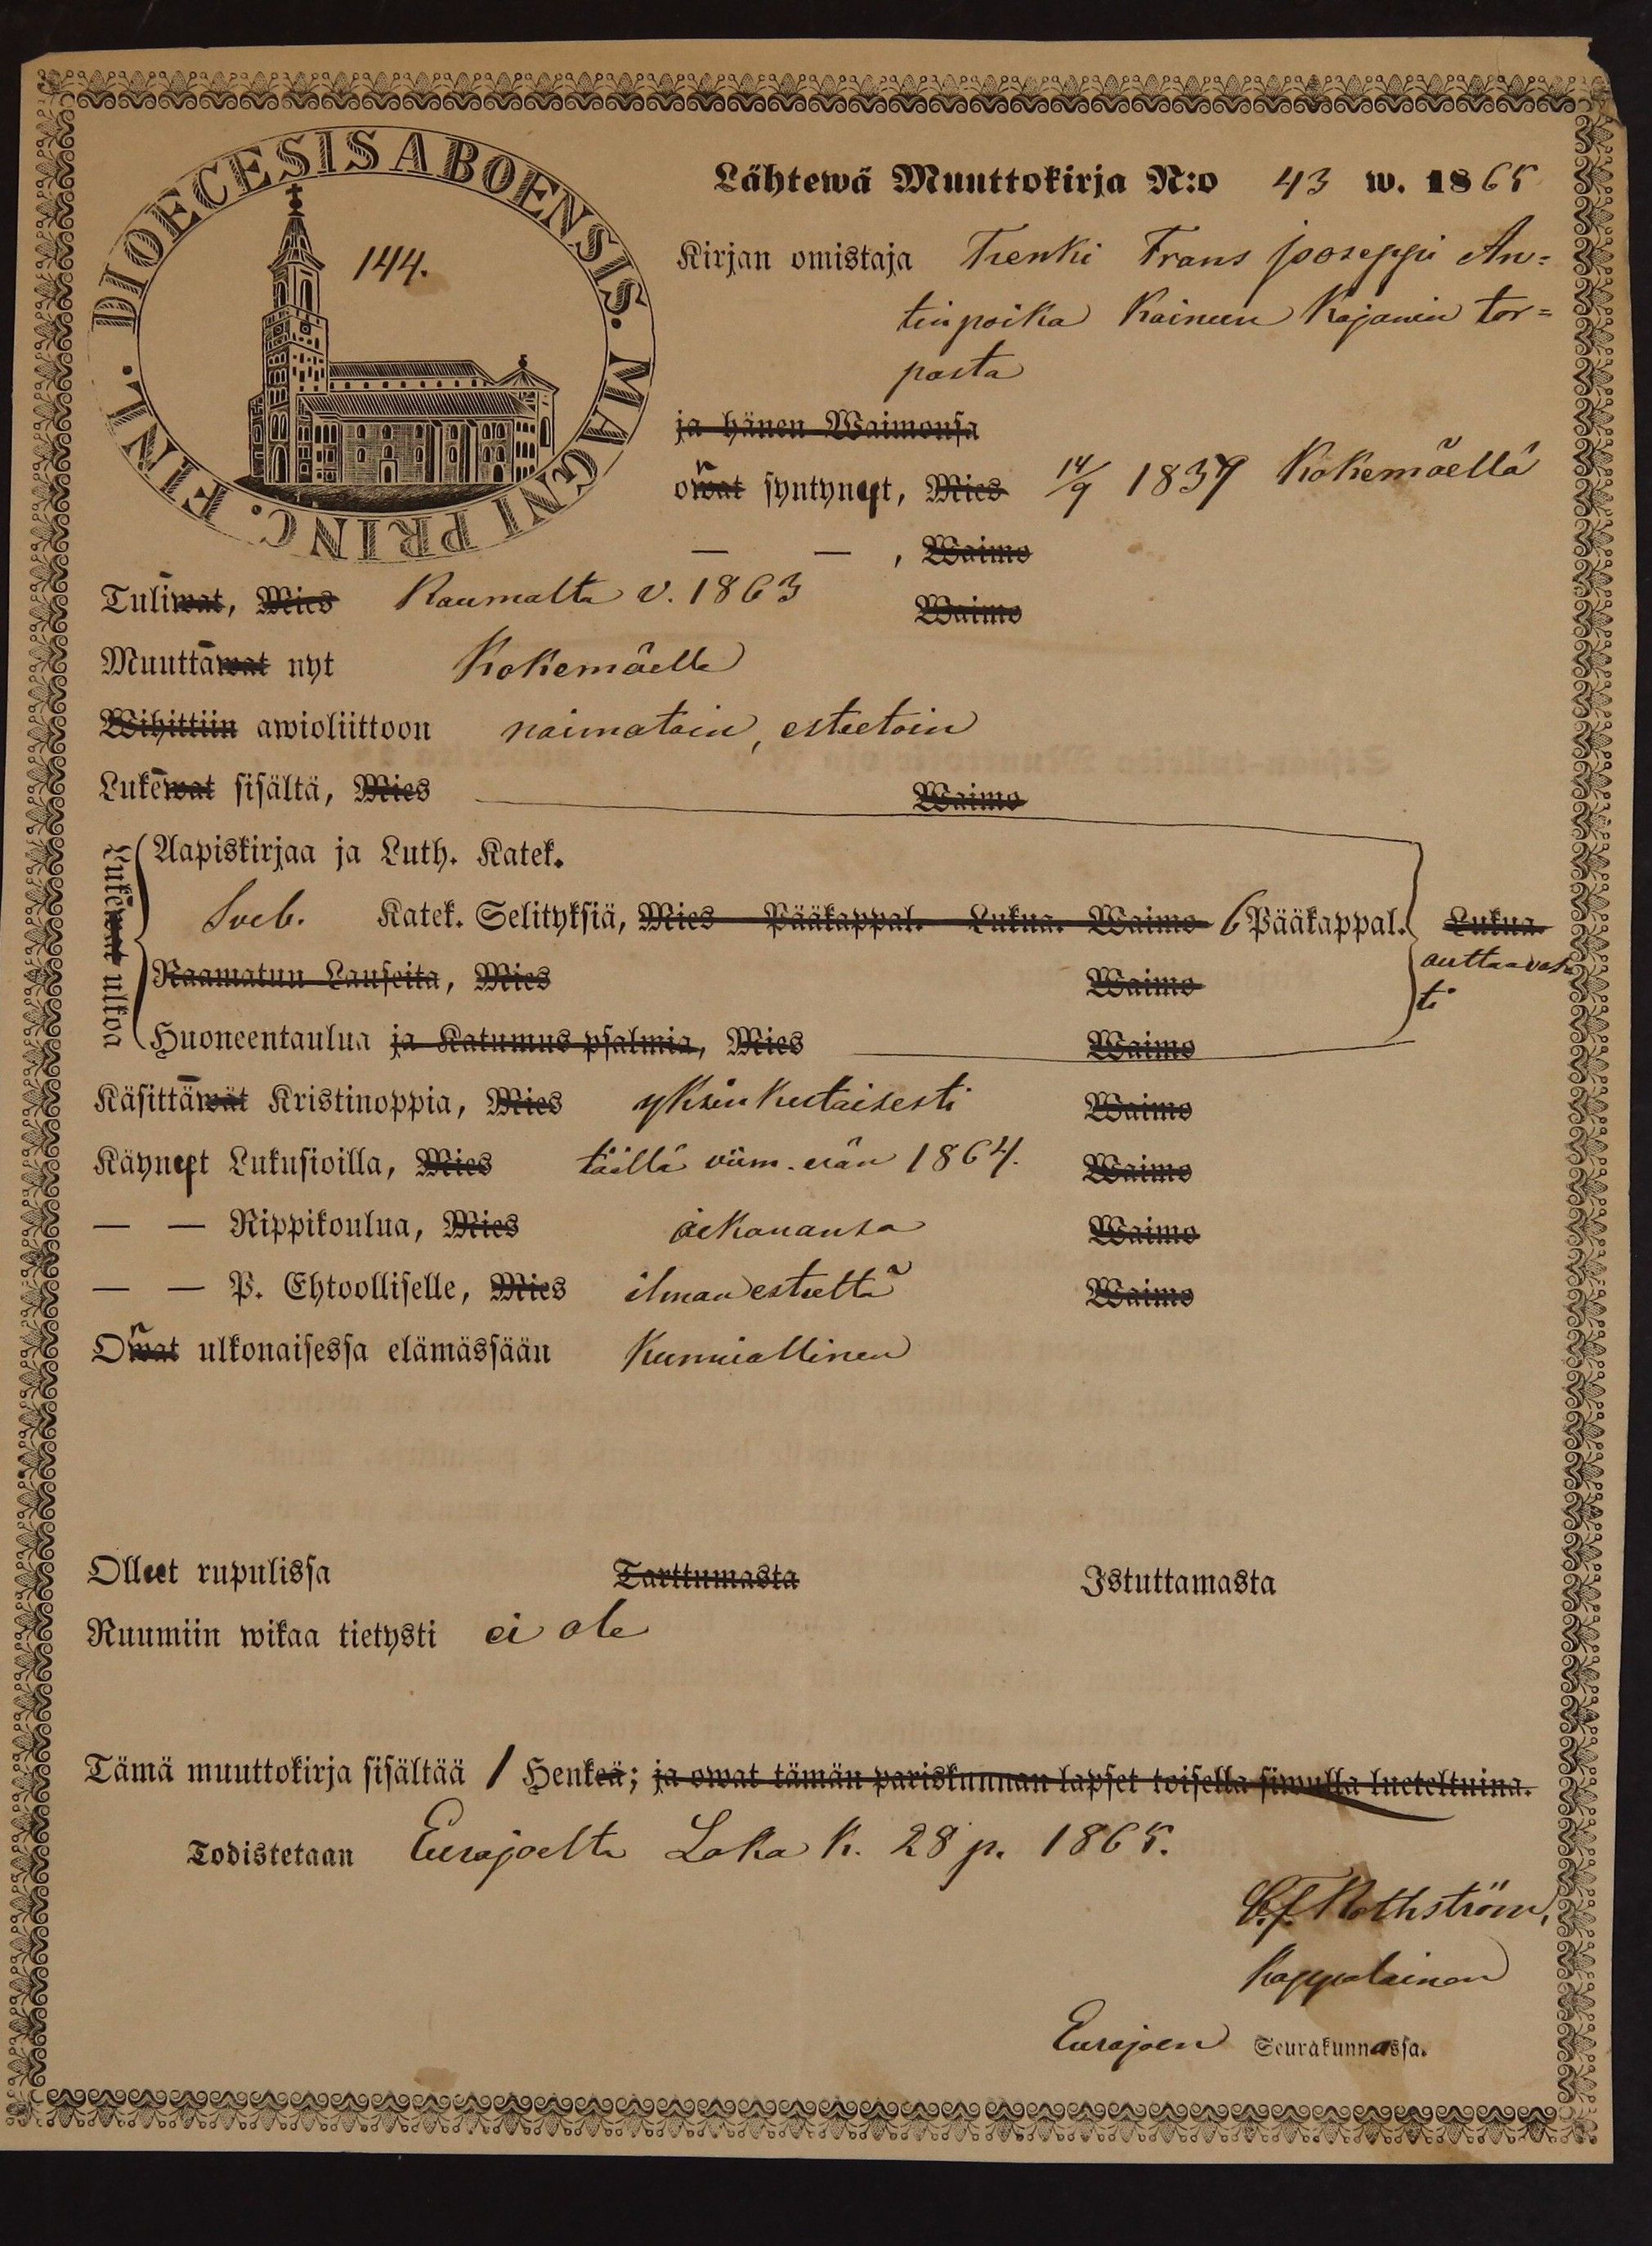 DIOECESIS ABOENSIS. MAGNI PRINC. FINL.
144.
Lähtewä Muuttokirja N:o 43 w. 1865
Kirjan omistaja Trenki Frans Jooseppi An=
tinpoika Kaineen Kajanin tor=
pasta
ja hänen Waimonsa
owat syntynyt, Mies 14/9 1839 Kokemäellä
— — , Waimo
Tuliwat, Mies Raumalta v. 1863 Waimo
Muuttawat nyt Kokemäelle
Wihittiin awioliittoon naimatoin, esteetoin
Lukewat sisältä, Mies Waimo
Lukewat ulkoa
Aapiskirjaa ja Luth. Katek.
Sveb. Katek. Selityksiä, Mies Pääkappal. Lukua. Waimo 6 Pääkappal. Lukua.
auttavas
ti
Raamatun Lauseita, Mies Waimo
Huoneentaulua ja Katumus psalmia, Mies Waimo
Käsittäwät Kristinoppia, Mies yksinkertaisesti Waimo
Käynyt Lukusioilla, Mies täällä viim. erän 1864. Waimo
— — Rippikoulua, Mies aikanansa Waimo
— — P. Ehtoolliselle, Mies ilman estettä Waimo
Owat ulkonaisessa elämässään Kunniallinen
Olleet rupulissa Tarttumasta Istuttamasta
Ruumiin wikaa tietysti ei ole
Tämä muuttokirja sisältää 1 Henkeä; ja owat tämän pariskunnan lapset toisella siwulla lueteltuina.
Todistetaan Eurajoelta Loka k. 28 p. 1865.
Rothström,
Kappalainen
Eurajoen Seurakunnassa.